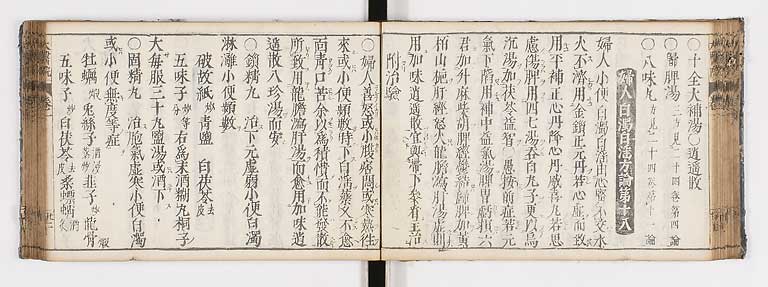 ○十全大補湯○逍遙散
○歸脾湯 方見二十四卷第四論
○八味丸 方見二十四卷第十一論
婦人白濁白淫方論第十八
婦人小便白濁白淫由心腎不交水
火不濟用金鎖正元丹若心虛而致
用平補正心丹降心丹威喜丸若思
慮傷脾用四七湯吞白丸子更以烏
沉湯加茯苓益智 愚按前症若元
氣下陷用補中益氣湯脾胃虧損六
君加升麻柴胡脾經鬱結歸脾加黃
柏山梔肝經怒火龍膽瀉肝湯虛則
用加味逍遙散宜與帶下參看主治
附治驗
○婦人善怒或小腹痞悶或寒熱往
來或小便頻數時下白淫藥久不愈
面青口苦余以爲積憤而不能發散
所致用龍膽瀉肝湯而愈用加味逍
遙散八珍湯而安
○鎖精丸 治下元虛弱小便白濁
淋瀝小便頻數
破故紙炒 青鹽 白茯苓
五味子炒等分 右爲末酒糊丸桐子
大每服三十丸鹽湯或酒下
○固精丸 治胞氣虛寒小便白濁
或小便無度等症
牡蠣煅 兎絲子 韭子炒 龍骨煅
五味子炒 白茯苓 桑螵蛸